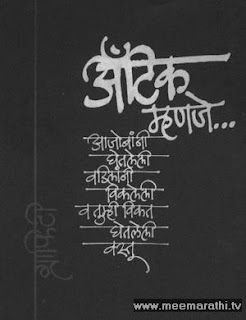 अँटिक
म्हणजे...
आजोबांनी
घेतलेली
वडिलांनी
विकलेली
व तुम्ही विकत
घेतलेली
वस्तू
ग्राफिटी
www.meemarathi.tv